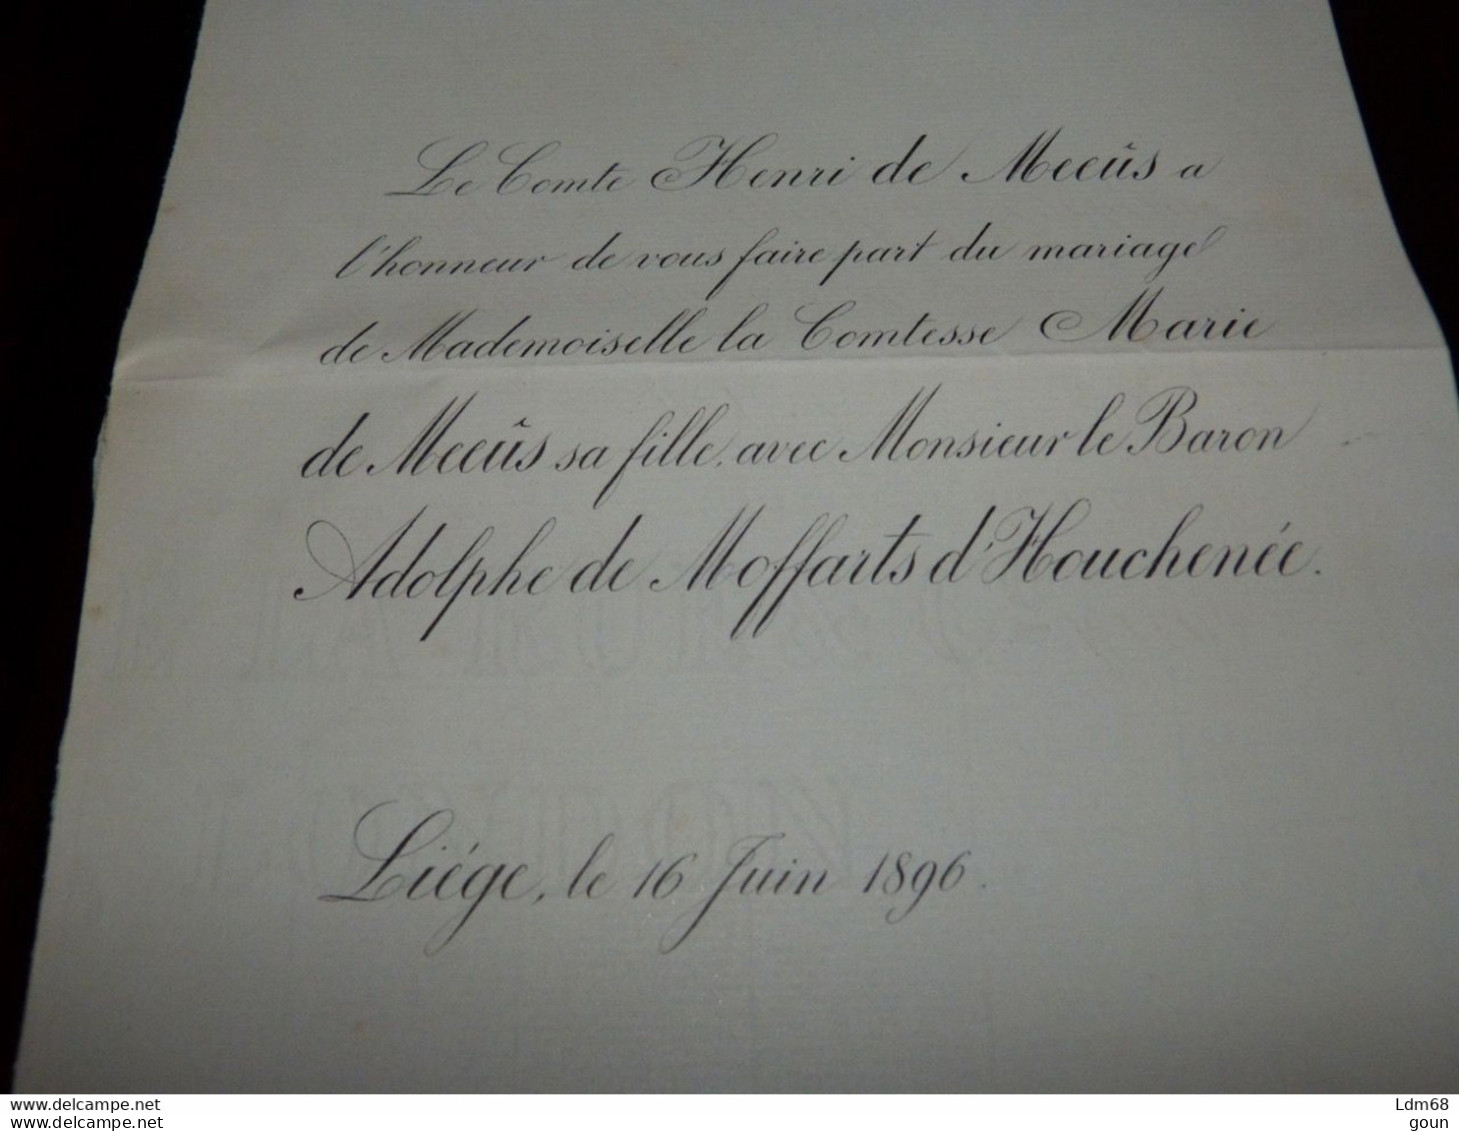 Le Comte Henri de Meeûs a
l'honneur de vous faire part du mariage
de Mademoiselle la Comtesse Marie
de Meeûs sa fille, avec Monsieur le Baron
Adolphe de Moffarts d'Houchenée.
Liége, le 16 Juin 1896.
www.delcampe.net
www.delcampe.net
Ldm68
goun